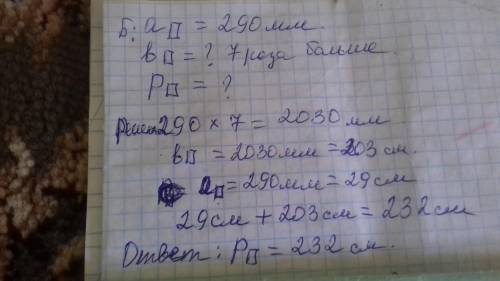 Б: a▭ = 290 мм.
b▭ = ? 7 раза больше.
P▭ = ?
Решен 290 × 7 = 2030 мм
b▭ = 2030 мм = 203 см.
a▭ = 290 мм = 29 см
29 см + 203 см = 232 см
Ответ: P▭ = 232 см.